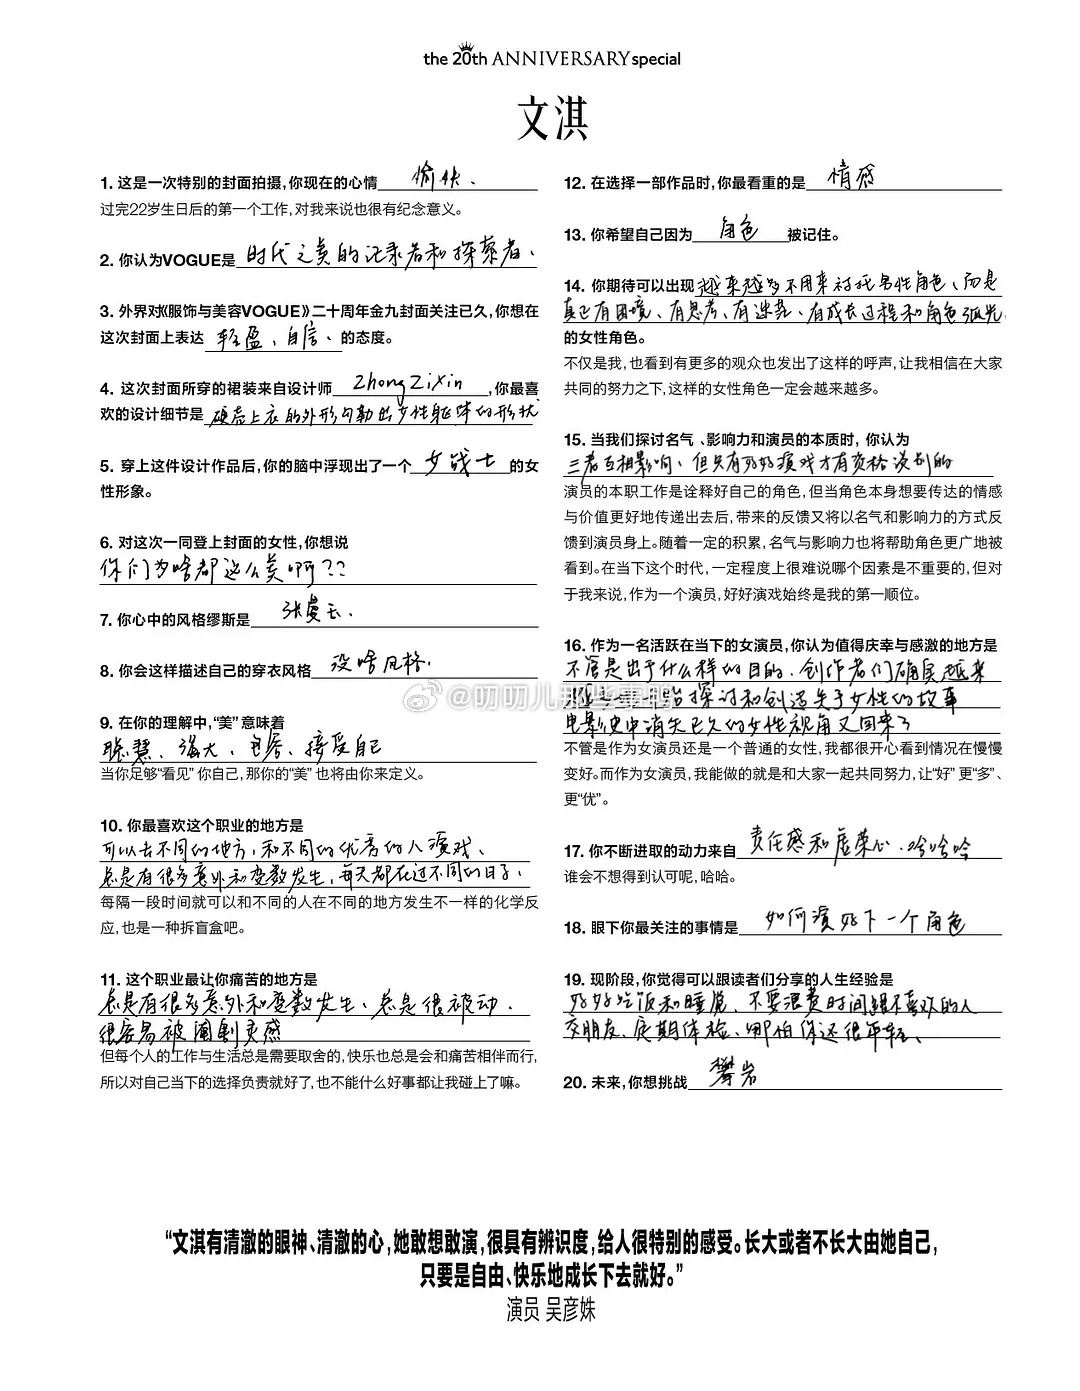 the 20th ANNIVERSARY special
文淇
1. 这是一次特别的封面拍摄,你现在的心情 愉快、
过完22岁生日后的第一个工作,对我来说也很有纪念意义。
2. 你认为VOGUE是 时代之美的记录者和探索者、
3. 外界对《服饰与美容VOGUE》二十周年金九封面关注已久,你想在
这次封面上表达 轻盈、自信、的态度。
4. 这次封面所穿的裙装来自设计师 Zhong Zixin ,你最喜
欢的设计细节是 硬卷上衣的外形勾勒出女性躯体的形状
5. 穿上这件设计作品后,你的脑中浮现出了一个 女战士 的女
性形象。
6. 对这次一同登上封面的女性,你想说
你们为啥都这么美啊??
7. 你心中的风格缪斯是 张曼玉.
8. 你会这样描述自己的穿衣风格 没啥风格.
9. 在你的理解中,“美”意味着
聪慧、强大、包容、接受自己
当你足够“看见”你自己,那你的“美”也将由你来定义。
10. 你最喜欢这个职业的地方是
可以去不同的地方,和不同的优秀的人演戏、
总是有很多意外和变数发生,每天都在过不同的日子、
每隔一段时间就可以和不同的人在不同的地方发生不一样的化学反
应,也是一种拆盲盒吧。
11. 这个职业最让你痛苦的地方是
总是有很多意外和变数发生、总是很被动、
很容易被阉割灵感
但每个人的工作与生活总是需要取舍的,快乐也总是会和痛苦相伴而行,
所以对自己当下的选择负责就好了,也不能什么好事都让我碰上了嘛。
12. 在选择一部作品时,你最看重的是 情感
13. 你希望自己因为 角色 被记住。
14. 你期待可以出现 越来越多不用来衬托男性角色、而是
真正有困境、有思考、有迷茫、有成长过程和角色弧光
的女性角色。
不仅是我,也看到有更多的观众也发出了这样的呼声,让我相信在大家
共同的努力之下,这样的女性角色一定会越来越多。
15. 当我们探讨名气、影响力和演员的本质时,你认为
三者互相影响、但只有好好演戏才有资格谈别的
演员的本职工作是诠释好自己的角色,但当角色本身想要传达的情感
与价值更好地传递出去后,带来的反馈又将以名气和影响力的方式反
馈到演员身上。随着一定的积累,名气与影响力也将帮助角色更广地被
看到。在当下这个时代,一定程度上很难说哪个因素是不重要的,但对
于我来说,作为一个演员,好好演戏始终是我的第一顺位。
16. 作为一名活跃在当下的女演员,你认为值得庆幸与感激的地方是
不管是出于什么样的目的、创作者们确实越来
越 探讨和创造关于女性的故事
电影史中消失已久的女性视角又回来了
不管是作为女演员还是一个普通的女性,我都很开心看到情况在慢慢
变好。而作为女演员,我能做的就是和大家一起共同努力,让“好”更“多”、
更“优”。
17. 你不断进取的动力来自 责任感和虚荣心.哈哈哈
谁会不想得到认可呢,哈哈。
18. 眼下你最关注的事情是 如何演好下一个角色
19. 现阶段,你觉得可以跟读者们分享的人生经验是
好好吃饭和睡觉、不要浪费时间跟不喜欢的人
交朋友、定期体检、哪怕你还很年轻、
20. 未来,你想挑战 攀岩
@叨叨儿那些事
“文淇有清澈的眼神、清澈的心,她敢想敢演,很具有辨识度,给人很特别的感受。长大或者不长大由她自己,
只要是自由、快乐地成长下去就好。”
演员 吴彦姝